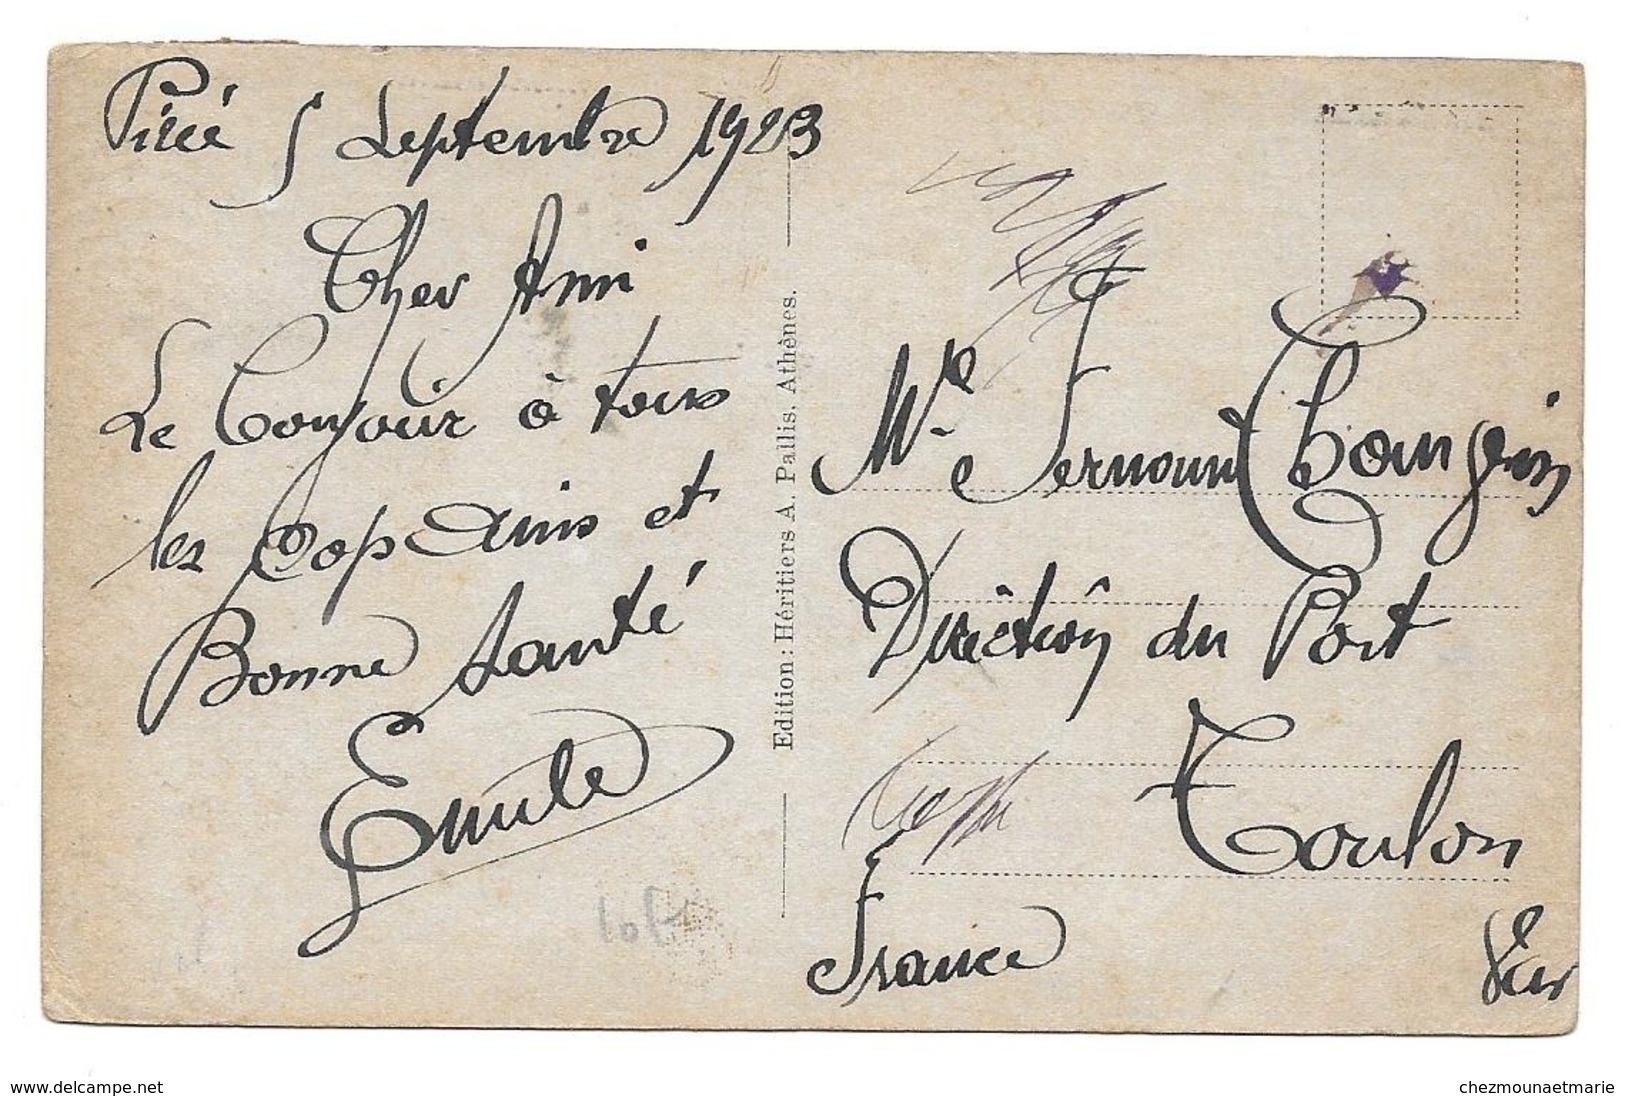 Pirée 5 Septembre 1923
Cher Ami
Le Bonjour à tous
les Copains et
Bonne Santé
Emile
Edition: Héritiers A. Pallis. Athènes.
Mr Fernand
Direction du Port
Toulon
France Var
www.delcampe.net
chezmounaetmarie